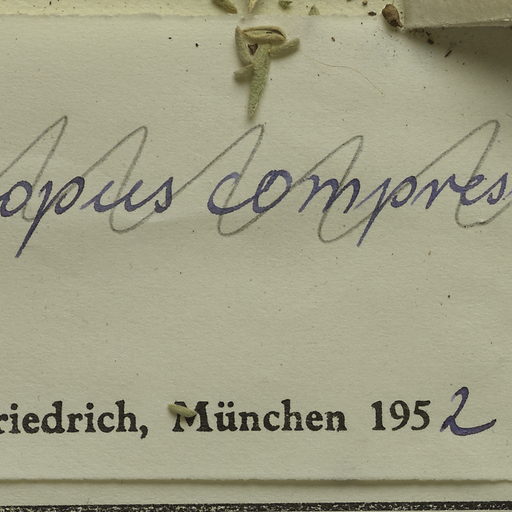 opus compres
riedrich, München 1952